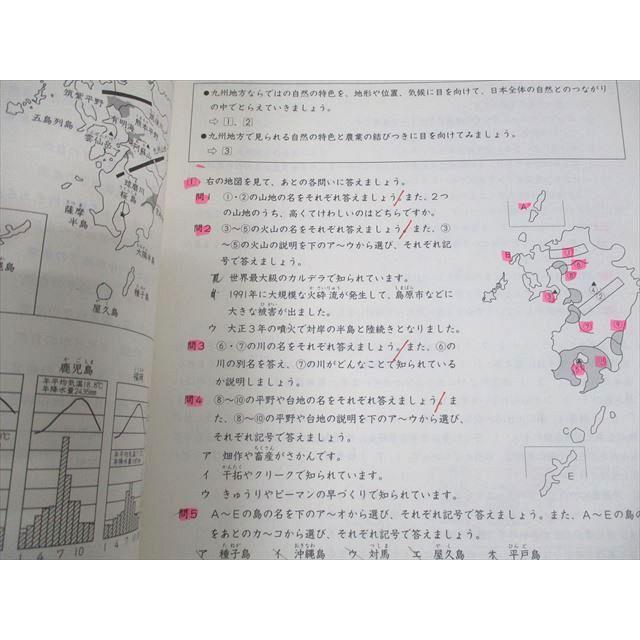 ●九州地方ならではの自然の特色を、地形や位置、気候に目を向けて、日本全体の自然とのつながり
の中でとらえていきましょう。
⇨ ①、②
●九州地方で見られる自然の特色と農業の結びつきに目を向けてみましょう。
⇨ ③
① 右の地図を見て、あとの各問いに答えましょう。
問1 ①・②の山地の名をそれぞれ答えましょう。また、2つ
の山地のうち、高くてけわしいのはどちらですか。
問2 ③～⑤の火山の名をそれぞれ答えましょう。また、③
～⑤の火山の説明を下のア～ウから選び、それぞれ記
号で答えましょう。
世界最大級のカルデラで知られています。
1991年に大規模な火砕流が発生して、島原市などに
大きな被害が出ました。
ウ 大正3年の噴火で対岸の半島と陸続きとなりました。
問3 ⑥・⑦の川の名をそれぞれ答えましょう。また、⑥の
川の別名を答え、⑦の川がどんなことで知られている
か説明しましょう。
問4 ⑧～⑩の平野や台地の名をそれぞれ答えましょう。ま
た、⑧～⑩の平野や台地の説明を下のア～ウから選び、
それぞれ記号で答えましょう。
ア 畑作や畜産がさかんです。
イ 干拓やクリークで知られています。
ウ きゅうりやピーマンの早づくりで知られています。
問5 A～Eの島の名を下のア～オから選び、それぞれ記号で答えましょう。また、A～Eの島の
をあとのカ～コから選び、それぞれ記号で答えましょう。
ア 種子島 イ 沖縄島 ウ 対馬 エ 屋久島 オ 平戸島
筑紫平野
五島列島
有明海
雲仙岳
球磨川
桜島
薩摩
半島
大隅半島
種子島
屋久島
鹿児島
年平均気温18.8℃
年降水量2435mm
福岡
1 4 7 10
A
B
C
D
E